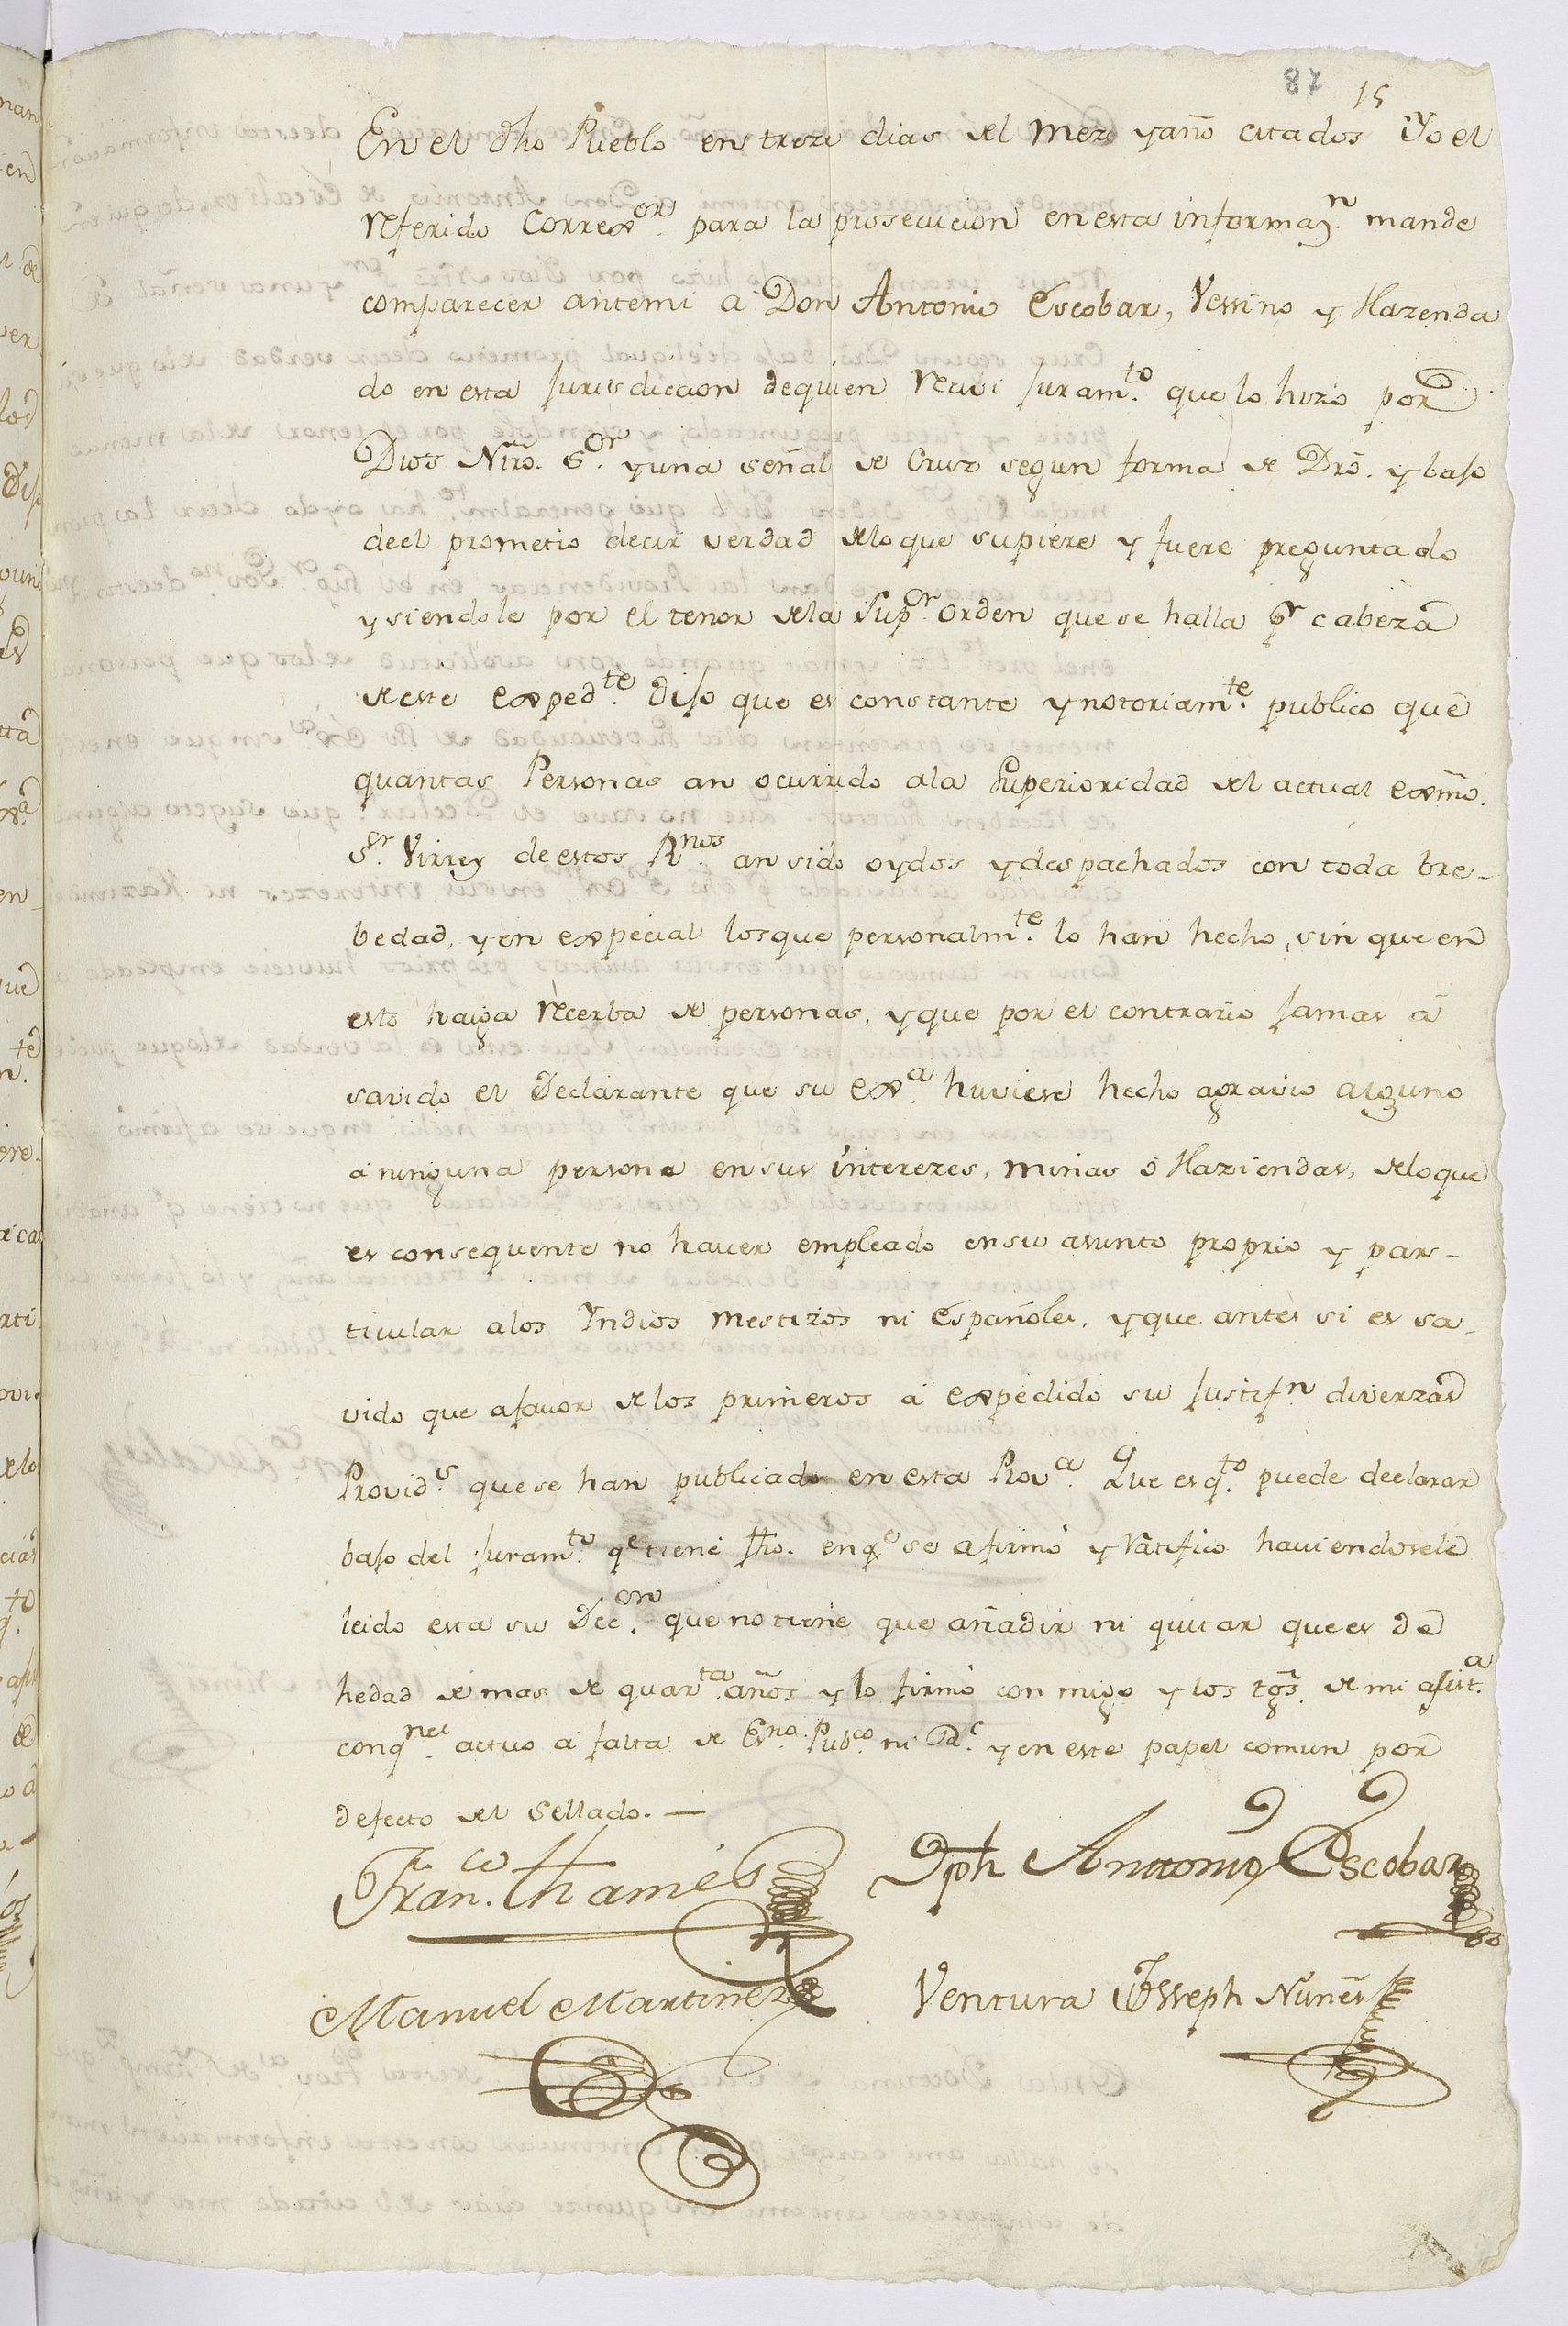 87 15
En el dho Pueblo en treze dias del Mez y año citados Yo el
referido Correxor. para la prosecucion en esta informazn. mande
comparecer antemi a Don Antonio Escobar, Vessino y Hazenda
do en esta Jurisdiccion de quien recivi Juramto. que lo hizo por
Dios Ntro. Sor. y una señal de Cruz segun forma de Dro. y bajo
de el prometio decir verdad de lo que supiere y fuere preguntado
y siendole por el tenor de la Supor. orden que se halla pr cabeza
de este expedte. Dijo que es constante y notoriamte. publico que
quantas Personas an ocurrido a la Superioridad del actual exmo.
Sr. Virrey de estos Rnos. an sido oydos y despachados con toda bre-
bedad, y en expecial los que personalmte. lo han hecho, sin que en
esto haiga recerba de personas, y que por el contrario Jamas á
savido el Declarante que su exa. huviese hecho agravio alguno
á ninguna persona en sus interezes, minas ó Haziendas, de lo que
es consequente no haver empleado en su asunto proprio y par-
ticular a los Yndios Mestizos ni Españoles, y que antes si es sa-
vido que afavor de los primeros á expedido su Justifn diverzas
Provids. que se han publicado en esta Prova. Que es qto. puede declarar
bajo del Juramto. qe tiene fho. en qe se afirmó y ratifico haviendosele
leido esta su Decon. que no tiene que añadir ni quitar que es de
hedad de mas de quarta. años y lo firmó con migo y los tgs. de mi asista.
con qnes. actuo á falta de Esno. Pubco. ni Rl. y en este papel comun por
defecto del Sellado. —
Franco. Thamés Jph Antonio Escobar
Manuel Martinez Ventura Joseph Nuñes